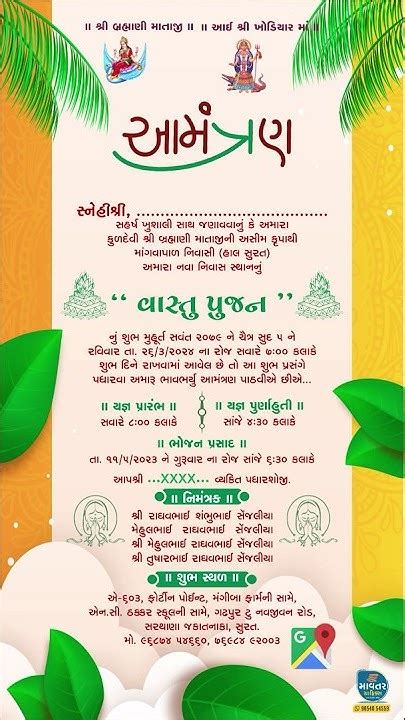 ॥ શ્રી બ્રહ્માણી માતાજી ॥ ॥ આઈ શ્રી ખોડિયાર માં ॥
આમંત્રણ
સ્નેહીશ્રી, ........................................
સહર્ષ ખુશાલી સાથ જણાવવાનું કે અમારા
કુળદેવી શ્રી બ્રહ્માણી માતાજીની અસીમ કૃપાથી
માંગવાપાળ નિવાસી (હાલ સુરત)
અમારા નવા નિવાસ સ્થાનનું
“ વાસ્તુ પુજન ”
નું શુભ મુહૂર્ત સવંત ૨૦૭૯ ને ચૈત્ર સુદ ૫ ને
રવિવાર તા. ૨૬/૩/૨૦૨૪ ના રોજ સવારે ૭:૦૦ કલાકે
શુભ દિને રાખવામાં આવેલ છે તો આ શુભ પ્રસંગે
પધારવા અમારૂ ભાવભર્યુ આમંત્રણ પાઠવીએ છીએ...
॥ યજ્ઞ પ્રારંભ ॥ ॥ યજ્ઞ પુર્ણાહુતી ॥
સવારે ૮:૦૦ કલાકે સાંજે ૪:૩૦ કલાકે
॥ ભોજન પ્રસાદ ॥
તા. ૧૧/૫/૨૦૨૩ ને ગુરૂવાર ના રોજ સાંજે ૬:૩૦ કલાકે
આપશ્રી ...XXXX... વ્યકિત પધારશોજી.
॥ નિમંત્રક ॥
શ્રી રાઘવભાઈ શંભુભાઈ સેંજલીયા
મેહુલભાઈ રાઘવભાઈ સેંજલીયા
શ્રી મેહુલભાઈ રાઘવભાઈ સેંજલીયા
શ્રી તુષારભાઈ રાઘવભાઈ સેંજલીયા
॥ શુભ સ્થળ ॥
એ-૬૦૩, ફોર્ટીન પોઈન્ટ, મંગીબા ફાર્મની સામે,
એન.સી. ઠક્કર સ્કૂલની સામે, ગઢપુર ટુ નવજીવન રોડ,
સરથાણા જકાતનાકા, સુરત.
મો. ૯૬૮૭૪ ૫૪૬૬૦, ૭૬૯૮૪ ૯૨૦૦૩
G
માવતર